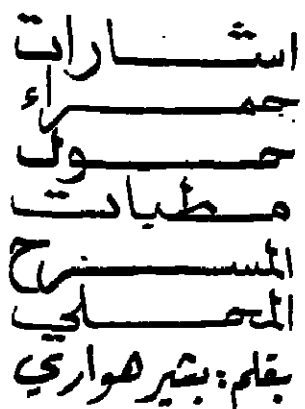 اشارات
جمراء
حول
مطبات
المسرح
المحلي
بقلم : بشير هواري